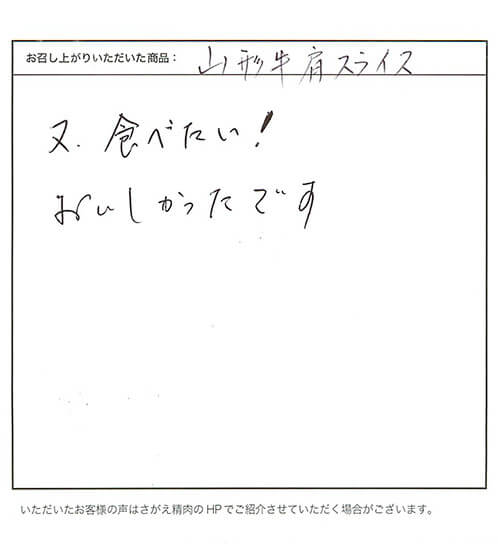 お召し上がりいただいた商品： 山形牛肩スライス
又、食べたい！
おいしかったです
いただいたお客様の声はさがえ精肉のHPでご紹介させていただく場合がございます。